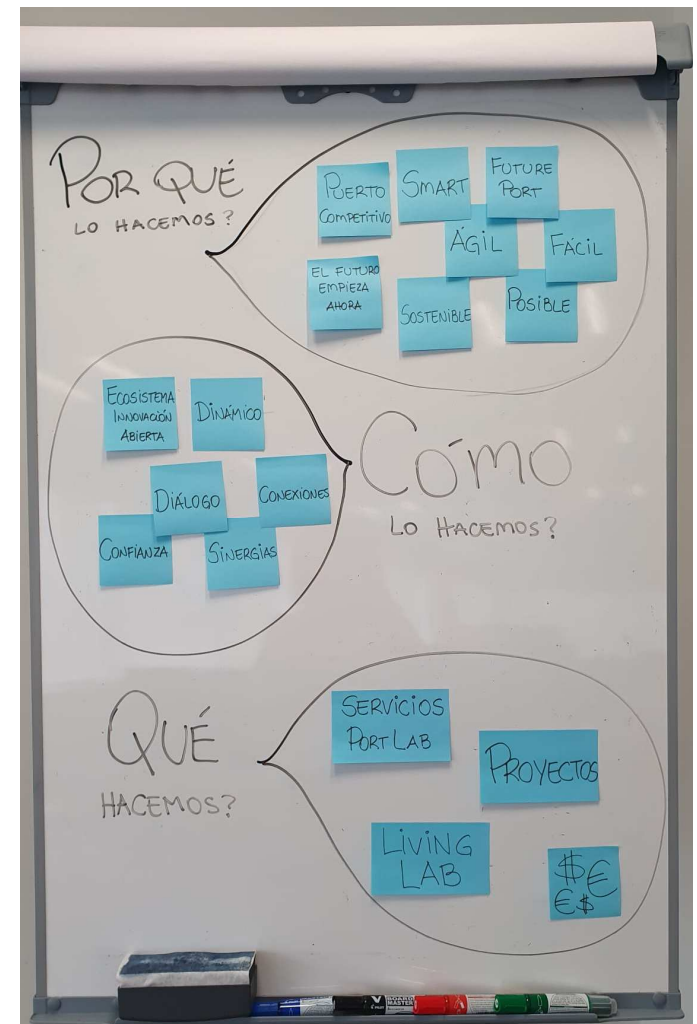 POR QUÉ
LO HACEMOS?
PUERTO
COMPETITIVO
SMART
FUTURE
PORT
ÁGIL
FÁCIL
EL FUTURO
EMPIEZA
AHORA
SOSTENIBLE
POSIBLE
CÓMO
LO HACEMOS?
ECOSISTEMA
INNOVACIÓN
ABIERTA
DINÁMICO
DIÁLOGO
CONEXIONES
CONFIANZA
SINERGIAS
QUÉ
HACEMOS?
SERVICIOS
PORT LAB
PROYECTOS
LIVING
LAB
$€
€$
V
BOARD
MASTER